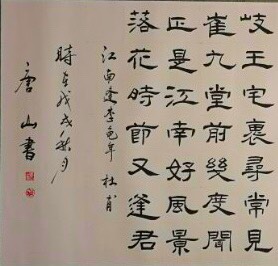 岐王宅裏尋常見
崔九堂前幾度聞
正是江南好風景
落花時節又逢君
江南逢李龜年 杜甫
時在戊戌秋月
唐山書